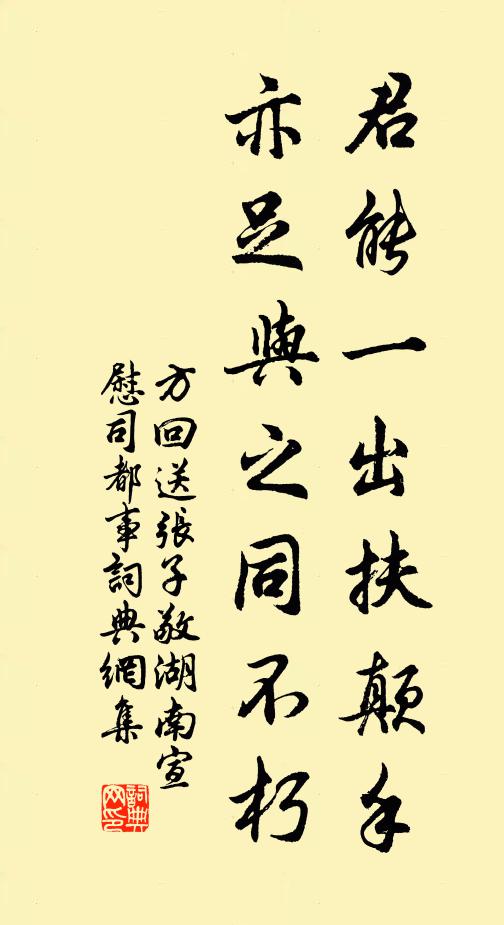 君能一出扶颠手
亦足與之同不朽
方回送張子敬湖南宣
慰司都事詞典網集
詞典
网印